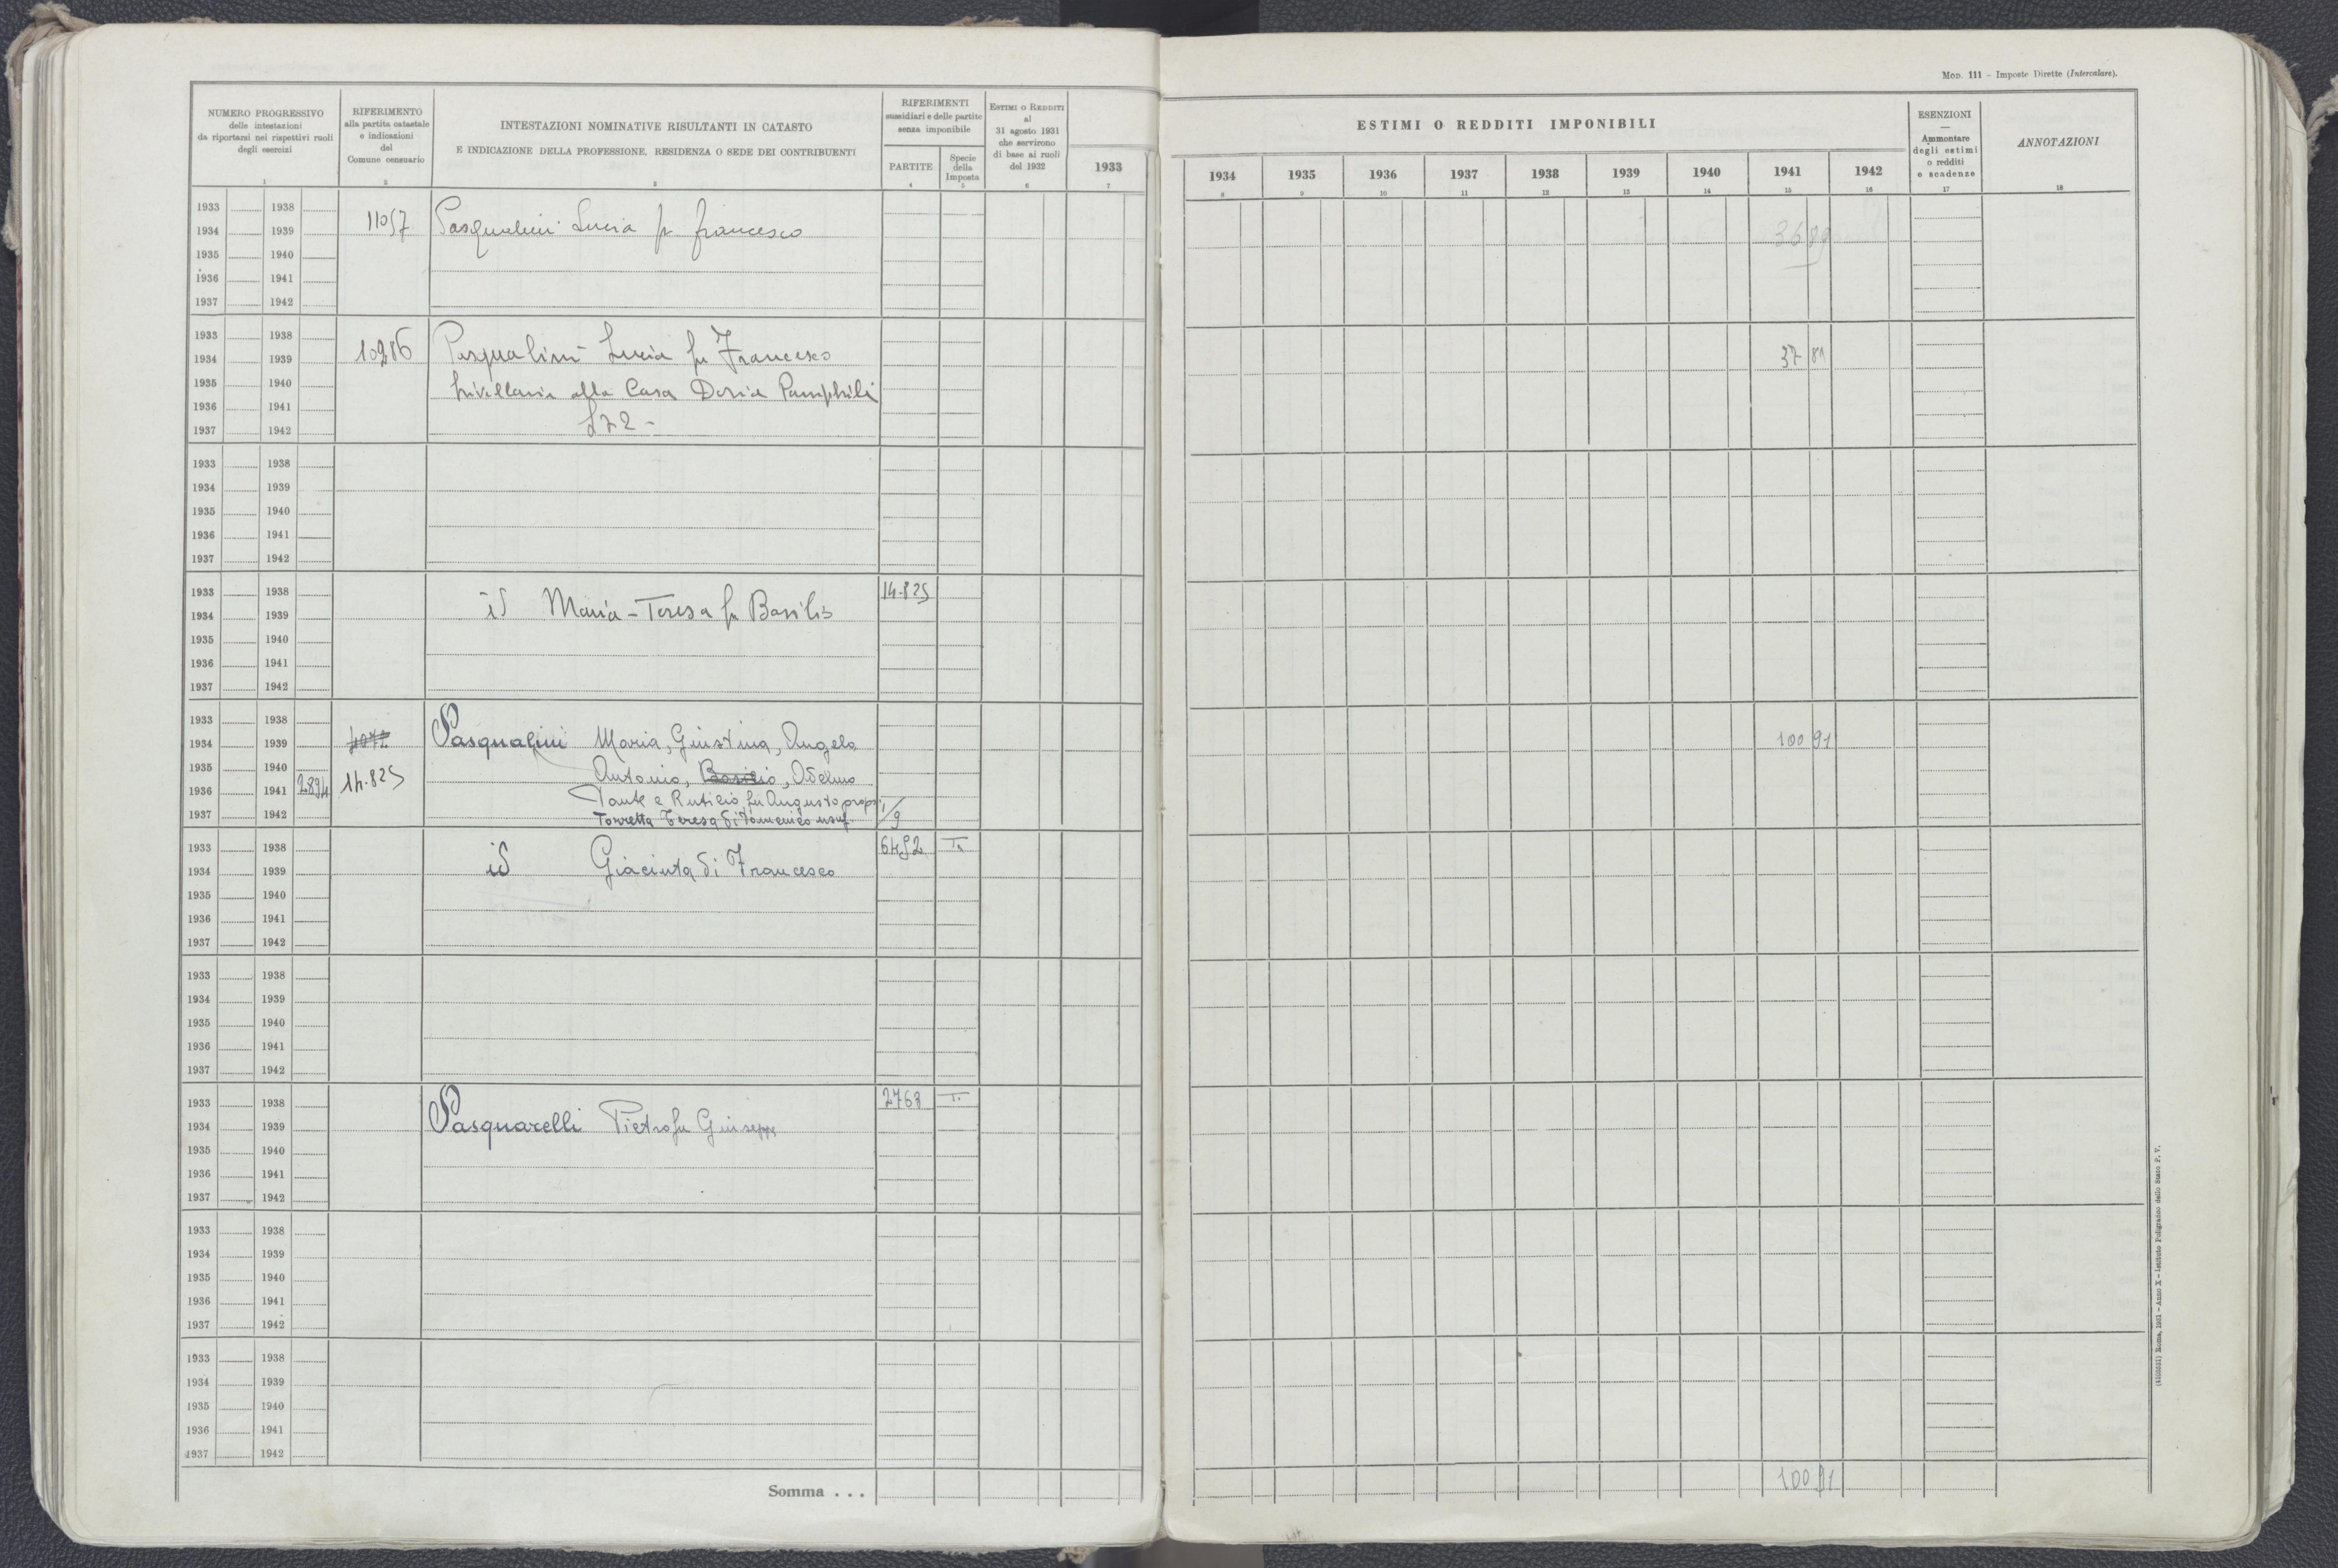 MOD. 111 – Imposte Dirette (Intercalare).
NUMERO PROGRESSIVO
delle intestazioni
da riportarsi nei rispettivi ruoli
degli esercizi
RIFERIMENTO
alla partita catastale
e indicazioni
del
Comune censuario
INTESTAZIONI NOMINATIVE RISULTANTI IN CATASTO
E INDICAZIONE DELLA PROFESSIONE, RESIDENZA O SEDE DEI CONTRIBUENTI
RIFERIMENTI
sussidiari e delle partite
senza imponibile
PARTITE
Specie
della
Imposta
ESTIMI O REDDITI
al
31 agosto 1931
che servirono
di base ai ruoli
del 1932
1933
ESTIMI O REDDITI IMPONIBILI
1934 1935 1936 1937 1938 1939 1940 1941 1942
ESENZIONI
—
Ammontare
degli estimi
o redditi
e scadenze
ANNOTAZIONI
1 2 3 4 5 6 7 8 9 10 11 12 13 14 15 16 17 18
1933 1938
1934 1939 11057 Pasqualini Lucia fu Francesco 36 89
1935 1940
1936 1941
1937 1942
1933 1938
1934 1939 10286 Pasqualini Lucia fu Francesco 37 81
1935 1940 livellaria alla Casa Doria Pamphili
1936 1941
1937 1942 £72 -
1933 1938
1934 1939
1935 1940
1936 1941
1937 1942
1933 1938 14.825
1934 1939 id Maria-Teresa fu Basilio
1935 1940
1936 1941
1937 1942
1933 1938
1934 1939 Pasqualini Maria, Giustina, Angelo 100 91
1935 1940 14.825 Antonio, Basilio, Adelmo
1936 1941 2894 Dante e Rutilio fu Augusto propr.
1937 1942 Torretta Teresa di Domenico usuf. 1/9
1933 1938 6492 T.
1934 1939 id Giacinta di Francesco
1935 1940
1936 1941
1937 1942
1933 1938
1934 1939
1935 1940
1936 1941
1937 1942
1933 1938 2768 T.
1934 1939 Pasquarelli Pietro fu Giuseppe
1935 1940
1936 1941
1937 1942
1933 1938
1934 1939
1935 1940
1936 1941
1937 1942
1933 1938
1934 1939
1935 1940
1936 1941
1937 1942
Somma . . . 100 91
Roma, 1931 – Anno X – Istituto Poligrafico dello Stato P. V.